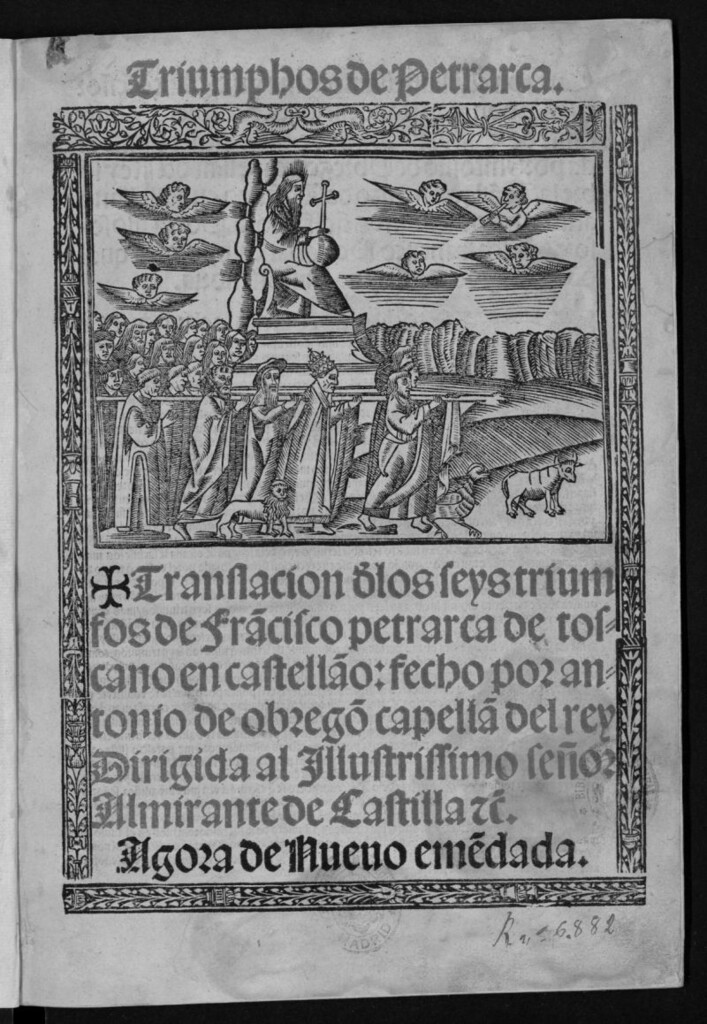 Triumphos de Petrarca.
✠Translacion đlos seys trium
fos de Frãcisco petrarca de tos⸗
cano en castellão: fecho por an⸗
tonio de obregõ capellã del rey
Dirigida al Illustrissimo señor
Almirante de Castilla ⁊c̃.
Agora de Nueuo emẽdada.
R n.º 6.882
MADRID